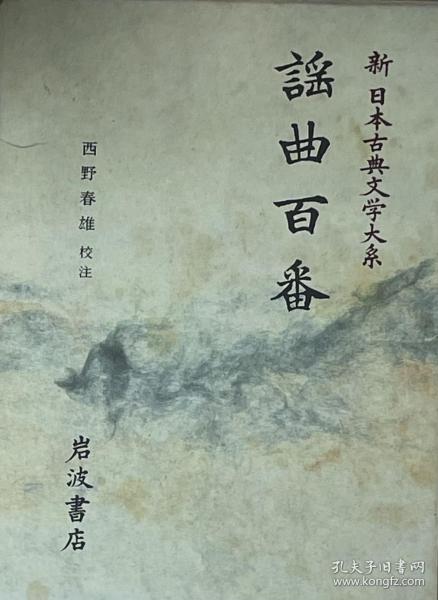 新 日本古典文学大系
謡曲百番
西野春雄 校注
岩波書店
孔夫子旧书网
www.kongfz.com